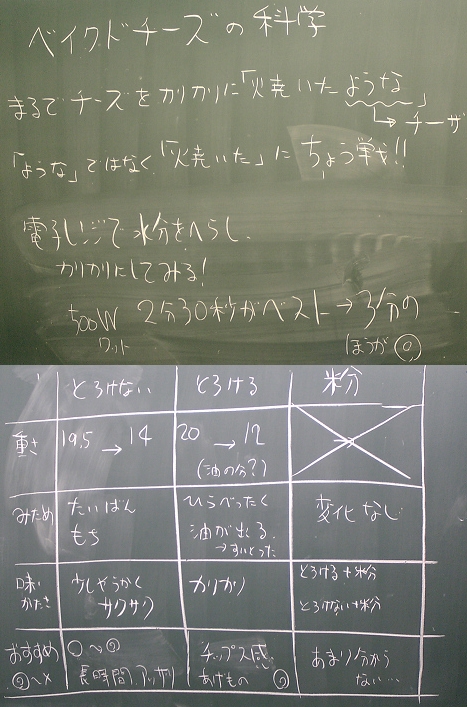 ベイクドチーズの科学
まるでチーズをカリカリに「火焼いたような」
→チーザ
「ような」ではなく「火焼いた」にちょう戦!!
電子レンジで水分をへらし、
カリカリにしてみる!
500W 2分30秒がベスト→3分の
ワット ほうが◎
とろけない とろける 粉
重さ 19.5→14 20→12
(油の分?)
みため たいばん ひらべったく 変化なし
もち 油が出る
→すいとった
味・ 少しやらかく カリカリ とろける+粉
かたさ サクサク とろけない+粉
おすすめ ○~◎ チップス感 あまり分から
◎~× 長時間、アッサリ あげもの ◎ ない…